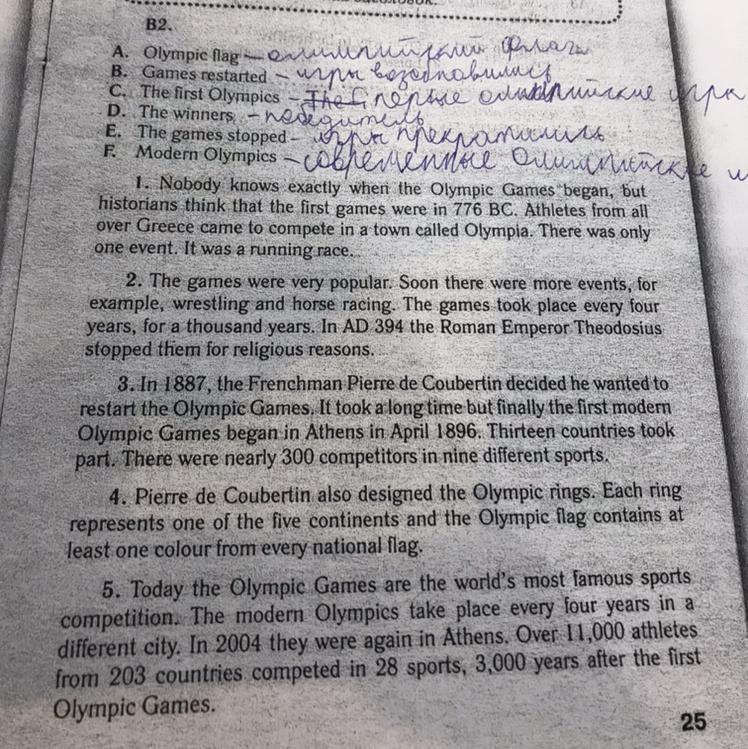 B2.
A. Olympic flag – олимпийский флаг
B. Games restarted – игры возобновились
C. The first Olympics – The f первые олимпийские игры
D. The winners – победитель
E. The games stopped – игры прекратились
F. Modern Olympics – современные Олимпийские и
1. Nobody knows exactly when the Olympic Games began, but
historians think that the first games were in 776 BC. Athletes from all
over Greece came to compete in a town called Olympia. There was only
one event. It was a running race.
2. The games were very popular. Soon there were more events, for
example, wrestling and horse racing. The games took place every four
years, for a thousand years. In AD 394 the Roman Emperor Theodosius
stopped them for religious reasons.
3. In 1887, the Frenchman Pierre de Coubertin decided he wanted to
restart the Olympic Games. It took a long time but finally the first modern
Olympic Games began in Athens in April 1896. Thirteen countries took
part. There were nearly 300 competitors in nine different sports.
4. Pierre de Coubertin also designed the Olympic rings. Each ring
represents one of the five continents and the Olympic flag contains at
least one colour from every national flag.
5. Today the Olympic Games are the world's most famous sports
competition. The modern Olympics take place every four years in a
different city. In 2004 they were again in Athens. Over 11,000 athletes
from 203 countries competed in 28 sports, 3,000 years after the first
Olympic Games.
25